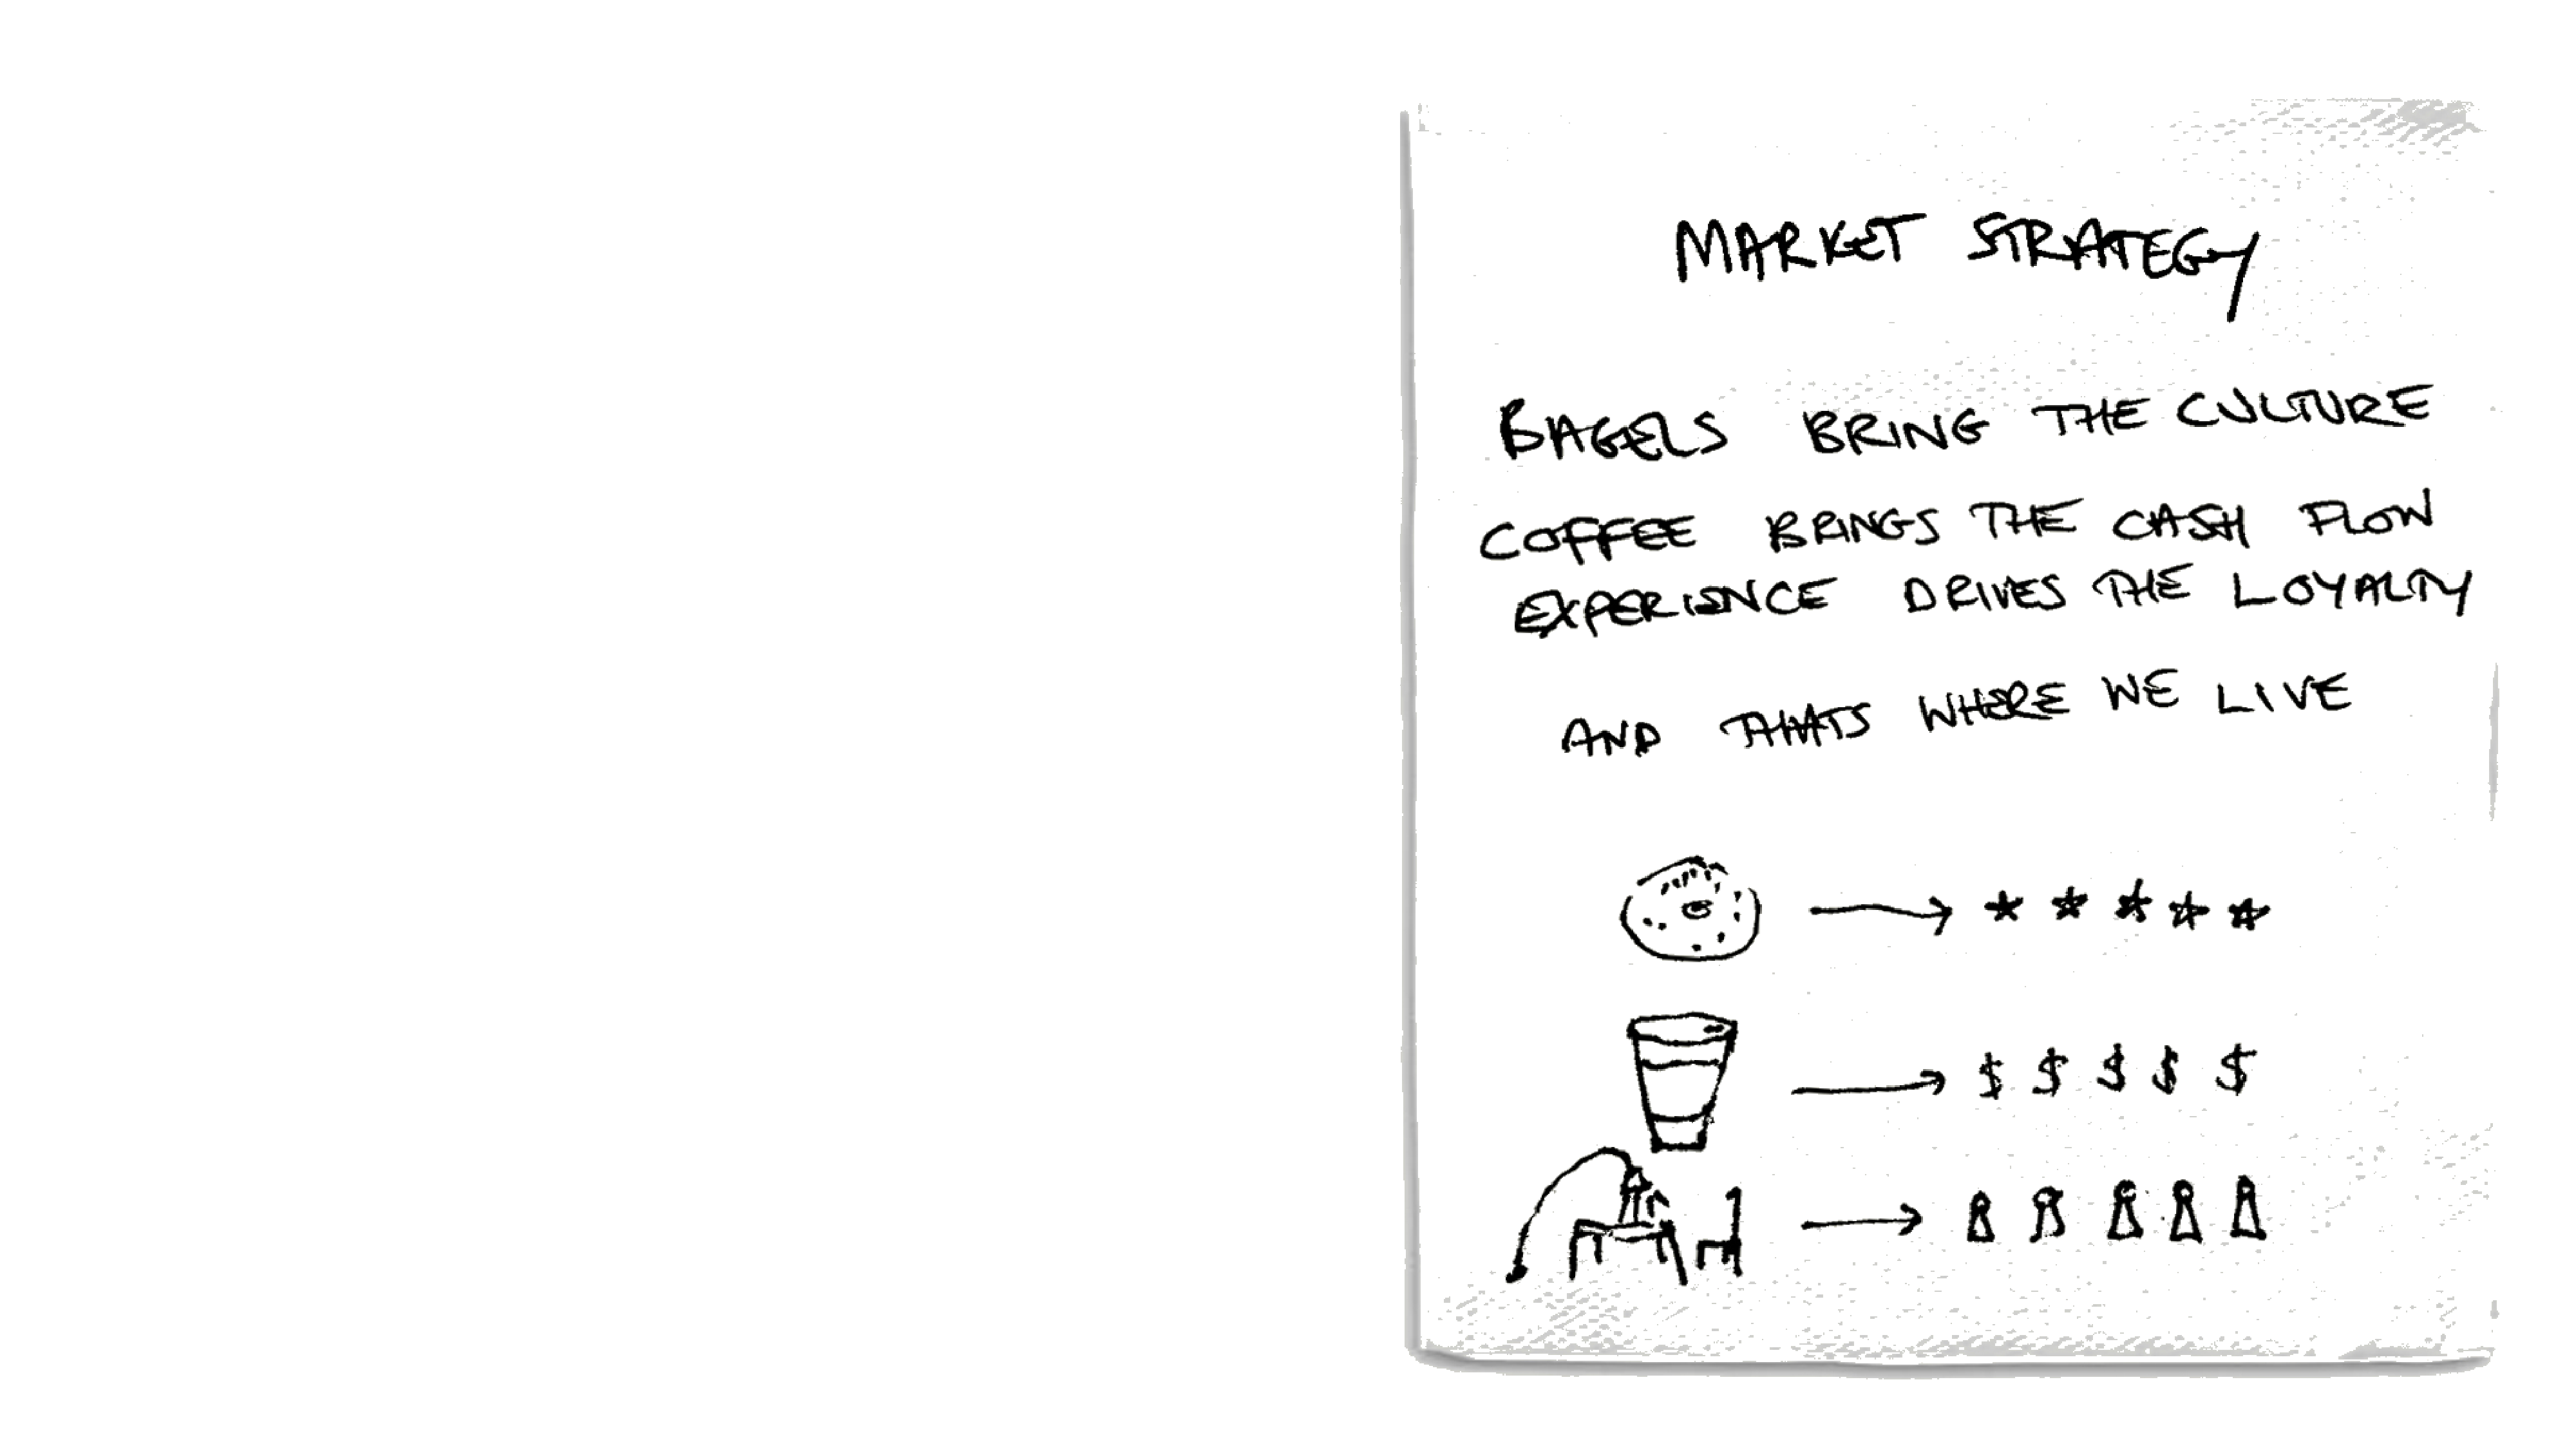 MARKET STRATEGY
BAGELS BRING THE CULTURE
COFFEE BRINGS THE CASH FLOW
EXPERIENCE DRIVES THE LOYALTY
AND THATS WHERE WE LIVE
$ $ $ $ $